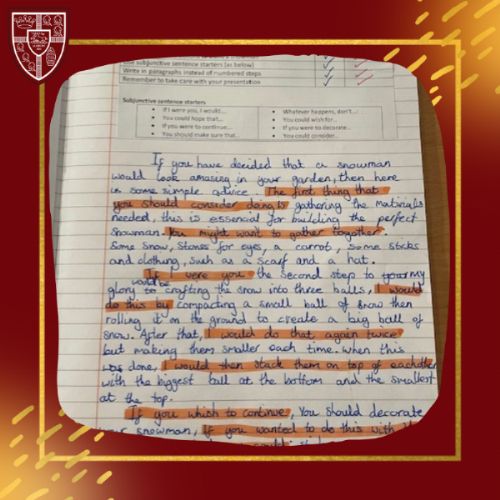 Use subjunctive sentence starters (as below)
Write in paragraphs instead of numbered steps
Remember to take care with your presentation
Subjunctive sentence starters
If I were you, I would...
You could hope that...
If you were to continue...
You should make sure that...
Whatever happens, don't...
You could wish for...
If you were to decorate...
You could consider...
If you have decided that a snowman
would look amazing in your garden, then here
is some simple advice. The first thing that
you should consider doing is gathering the materials
needed, this is essencial for building the perfect
snowman. You might want to gather together
some snow, stones for eyes, a carrot, some sticks
and clothing, such as a scarf and a hat.
If were you the second step to my
would be
glory to crafting the snow into three balls, I would
do this by compacting a small ball of snow then
rolling it on the ground to create a big ball of
snow. After that, I would do that again twice
but making them smaller each time. When this
was done, I would then stack them on top of eachother
with the biggest ball at the bottom and the smallest
at the top.
If you whish to continue, You should decorate
snowman, if you wanted to do this with